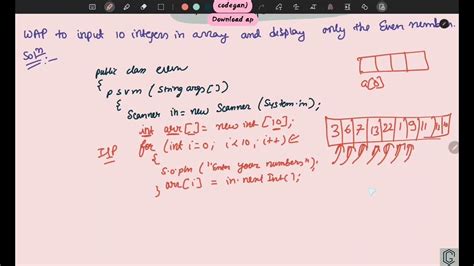 codegan)
Download ap
WAP to input 10 integers in array and display only the Even number.
Solⁿ:-
public class even
{ p s v m (String args[])
{ Scanner in = new Scanner (System.in);
int arr[] = new int [10];
a[8]
I/P for (int i=0; i<10; i++)
{
S.o.pln ("Enter your numbers");
arr[i] = in.nextInt();
}
3 6 7 13 22 1 9 11